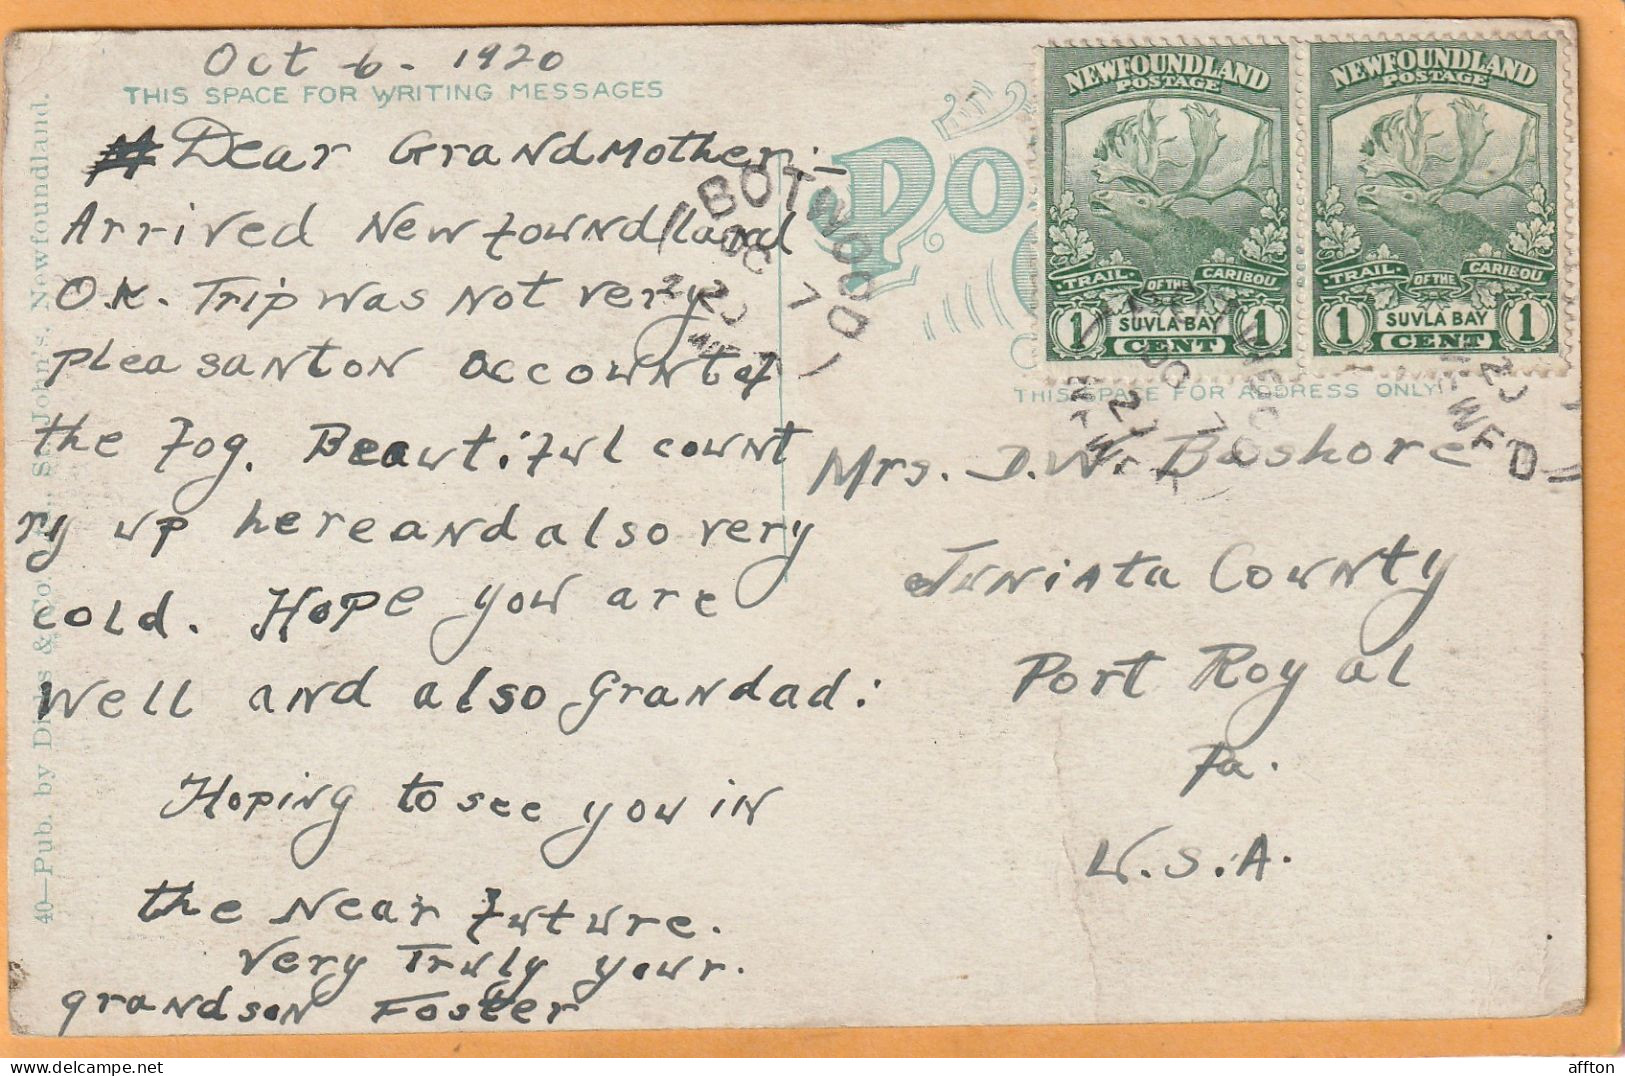 Oct 6 - 1920
THIS SPACE FOR WRITING MESSAGES
Dear Grandmother:-
Arrived Newfoundland
O.K. Trip was not very
pleasanton account of
the fog. Beautiful count
ry up hereand also very
cold. Hope you are
well and also Grandad:
Hoping to see you in
the near future.
Very Truly your.
grandson Foster
40—Pub. by Dicks & Co., St. John's, Newfoundland.
BOTWOOD
OC 7
20
NFLD
NEWFOUNDLAND
POSTAGE
TRAIL OF THE CARIBOU
1 SUVLA BAY 1
CENT
NEWFOUNDLAND
POSTAGE
TRAIL OF THE CARIBOU
1 SUVLA BAY 1
CENT
THIS SPACE FOR ADDRESS ONLY
Mrs. D.W. Bashore
Juniata County
Port Royal
Pa.
U.S.A.
affton